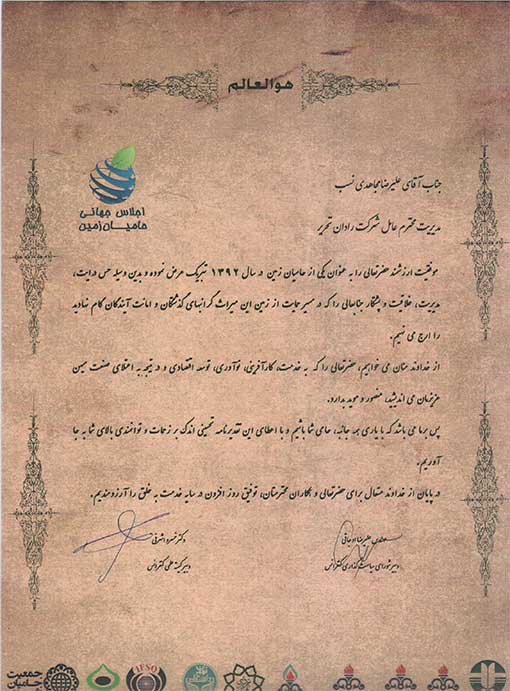 هوالعالم
اجلاس جهانی
حامیان زمین
جناب آقای علیرضا مجاهدی نسب
مدیریت محترم عامل شرکت رادان تحریر
موفقیت ارزشمند حضرتعالی را به عنوان یکی از حامیان زمین در سال ۱۳۹۲ تبریک عرض نموده و بدین وسیله حس درایت،
مدیریت، خلاقیت و پشتکار جنابعالی را که در مسیر حمایت از زمین این میراث گرانبهای گذشتگان و امانت آیندگان گام نهادید
را ارج می نهیم.
از خداوند منان می خواهیم، حضرتعالی را که به خدمت، کارآفرینی، نوآوری، توسعه اقتصادی و در نتیجه به اعتلای صنعت میهن
عزیزمان می اندیشید، منصور و موید بدارد.
پس برما می باشد که با یاری همه جانبه، حامی شما باشیم و با اعطای این تقدیرنامه تحسینی اندک بر زحمات و توانمندی بالای شما به جا
آوریم.
در پایان از خداوند متعال برای حضرتعالی و همکاران محترمتان، توفیق روز افزون در سایه خدمت به خلق را آرزومندیم.
مهندس علیرضا
دبیر شورای سیاست گذاری کنفرانس
دکتر خسرو اشرفی
دبیر کمیته علمی کنفرانس
جمعیت
حامیان
IFSO